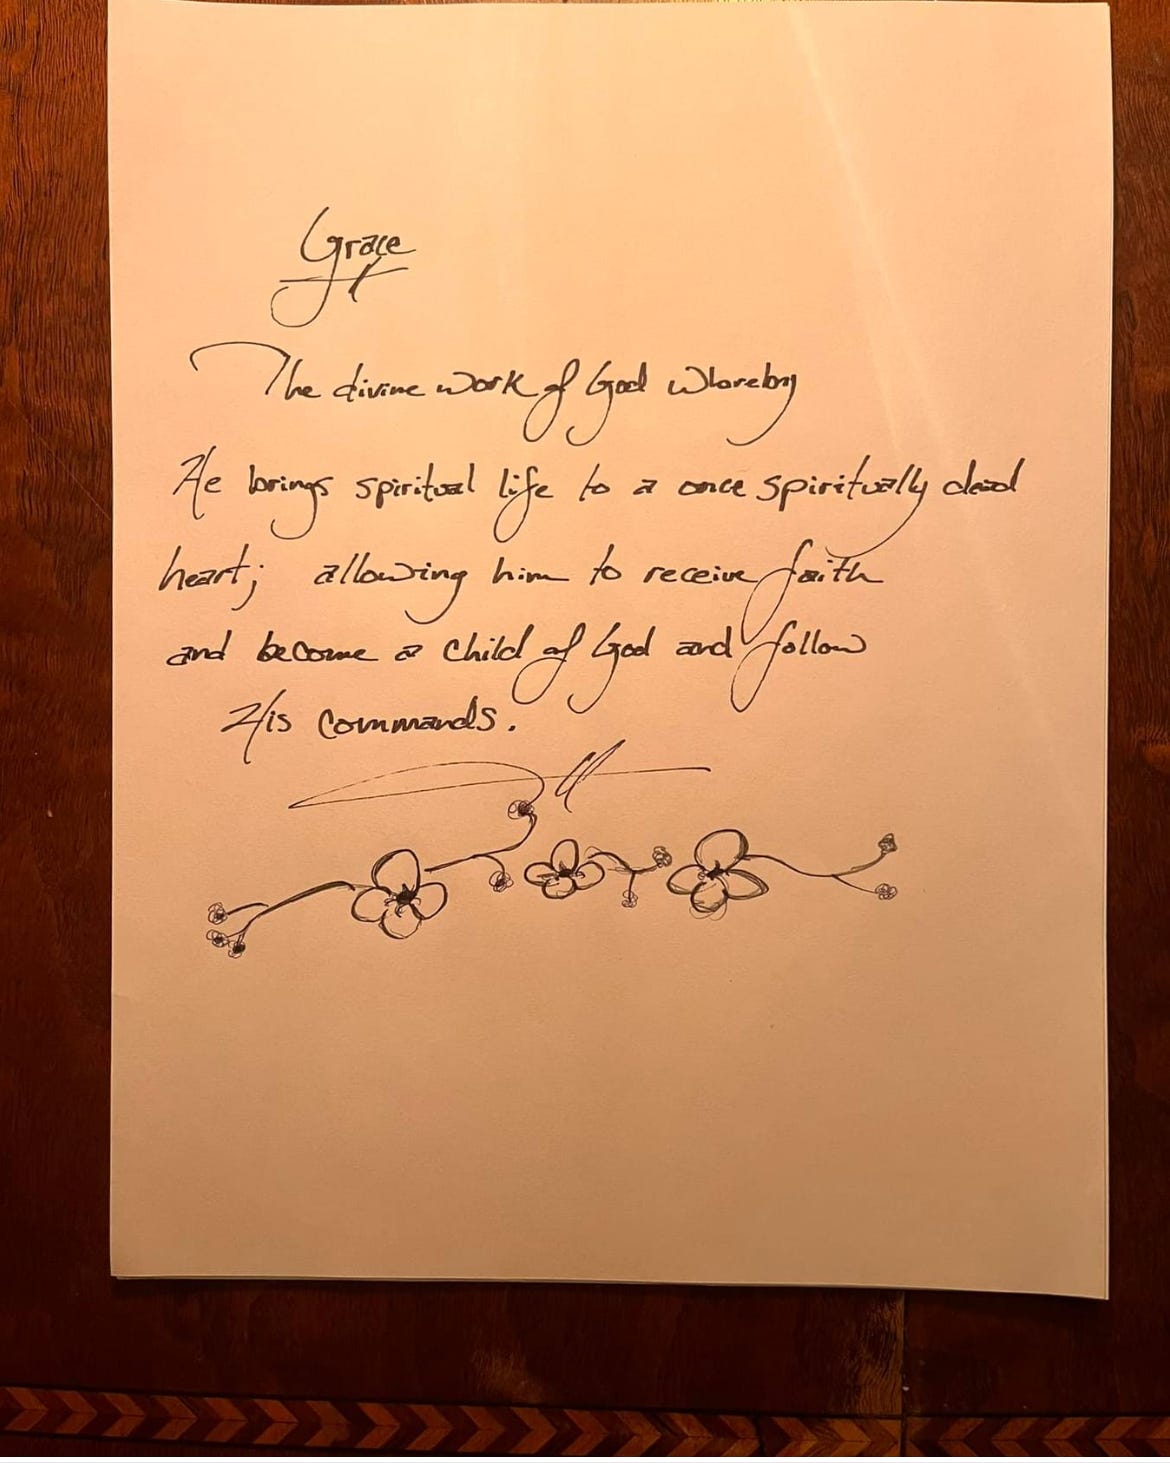 Grace
The divine work of God whereby
He brings spiritual life to a once spiritually dead
heart; allowing him to receive faith
and become a child of God and follow
His commands.